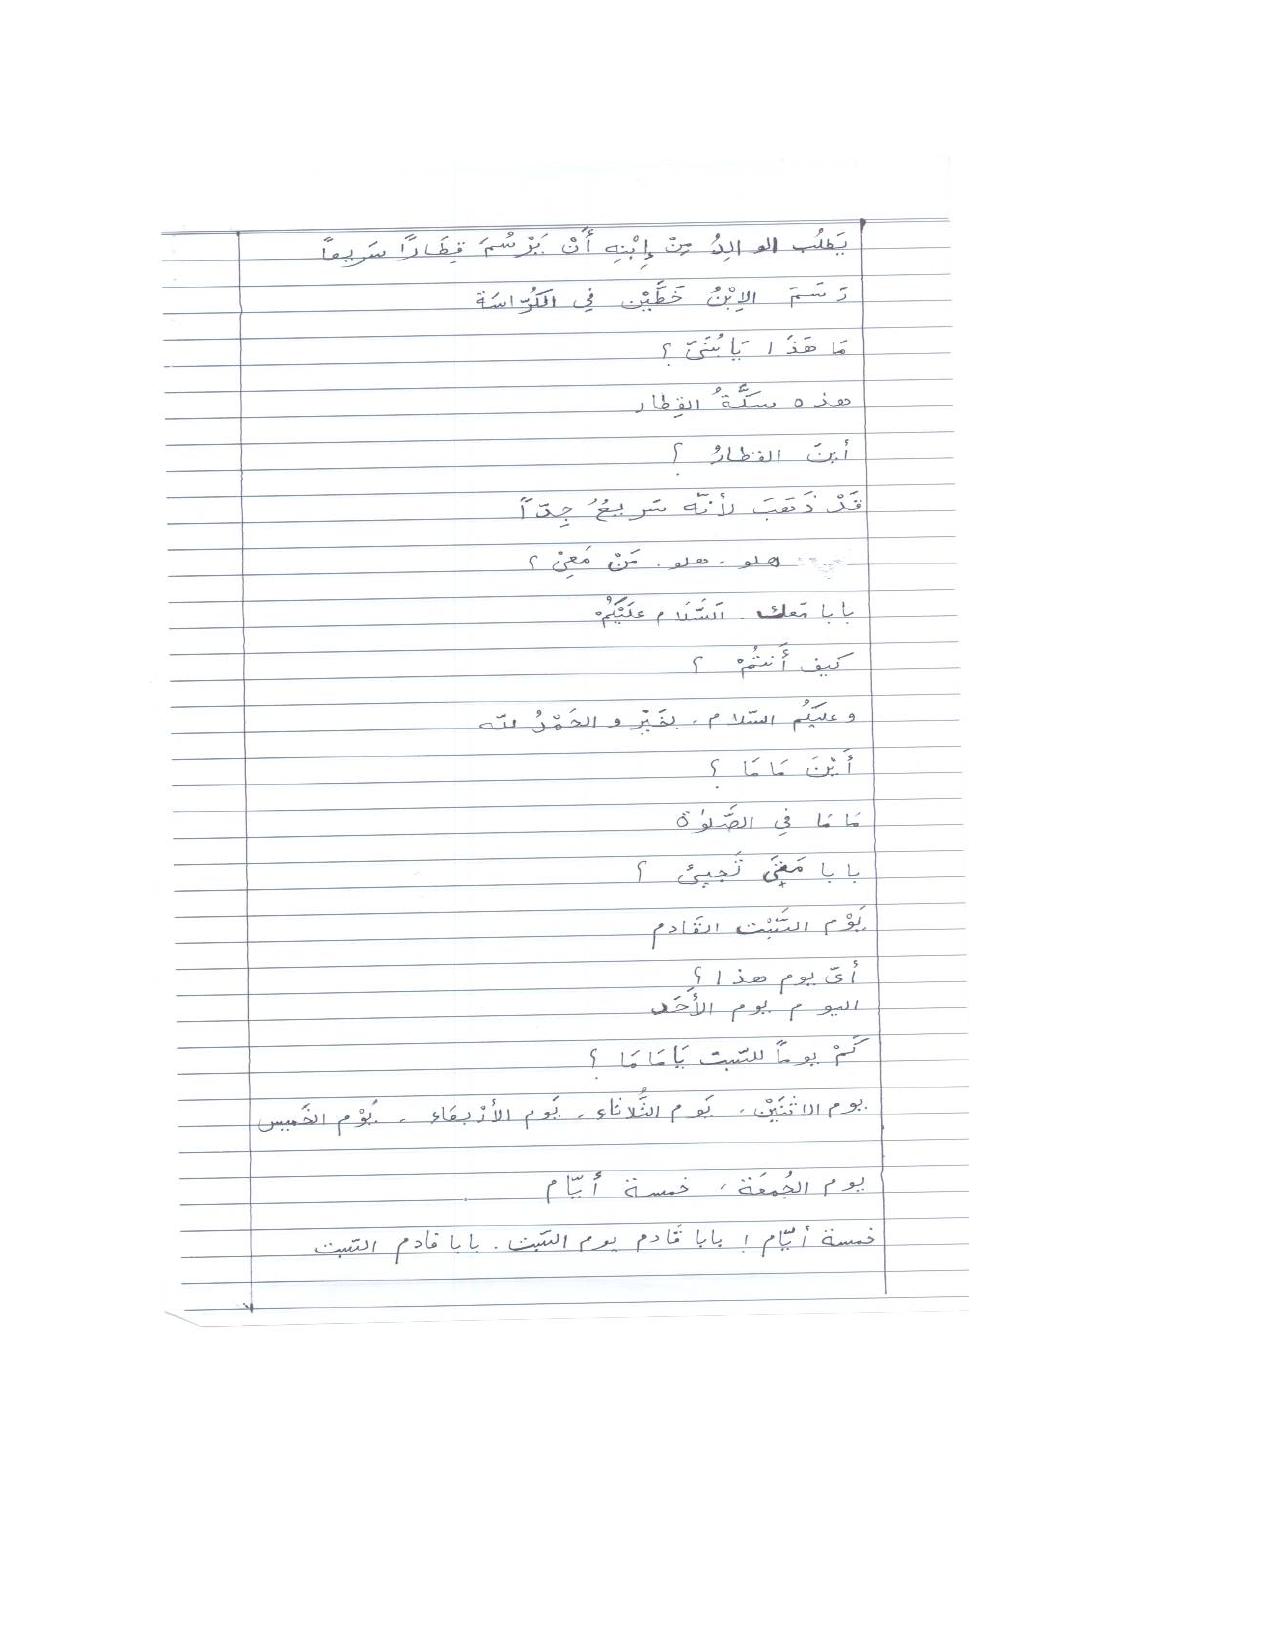 يَطلُب الوالِدُ مِنْ إِبْنِهِ أَنْ يَرْسُمَ قِطَارًا سَرِيعاً
رَسَمَ الإِبْنُ خَطَّيْنِ فِي الكُرّاسَة
مَا هَذَا يَا بُنَىَّ ؟
هذه سِكَّةُ القِطار
أينَ القطارُ ؟
قَدْ ذَهَبَ لأنّه سَريعُ جِدّاً
هلو . هلو . مَنْ مَعِيْ ؟
بابا مَعك . اَلسَّلَام عَلَيْكُمْ
كيف أَنتُمْ ؟
وعليكُم السّلام ، بخَيْرٍ و الحَمْدُ لله
أَيْنَ مَامَا ؟
مَامَا فِي الصَّلوٰة
بابا مَتَى تَجِيئ ؟
يَوْم السَّبْت القَادم
أىّ يوم هذا ؟
اليوم يوم الأَحَد
كَمْ يوماً للسّبت يَا مَامَا ؟
يوم الاثنَيْن ، يَوم الثُّلاثاء ، يَوم الأرْبعَاء ، يَوْم الخَمِيس
يوم الجُمعَة ، خمسة أيّام
خمسة أيّام ! بابا قَادم يوم السّبت . بابا قادم السّبت